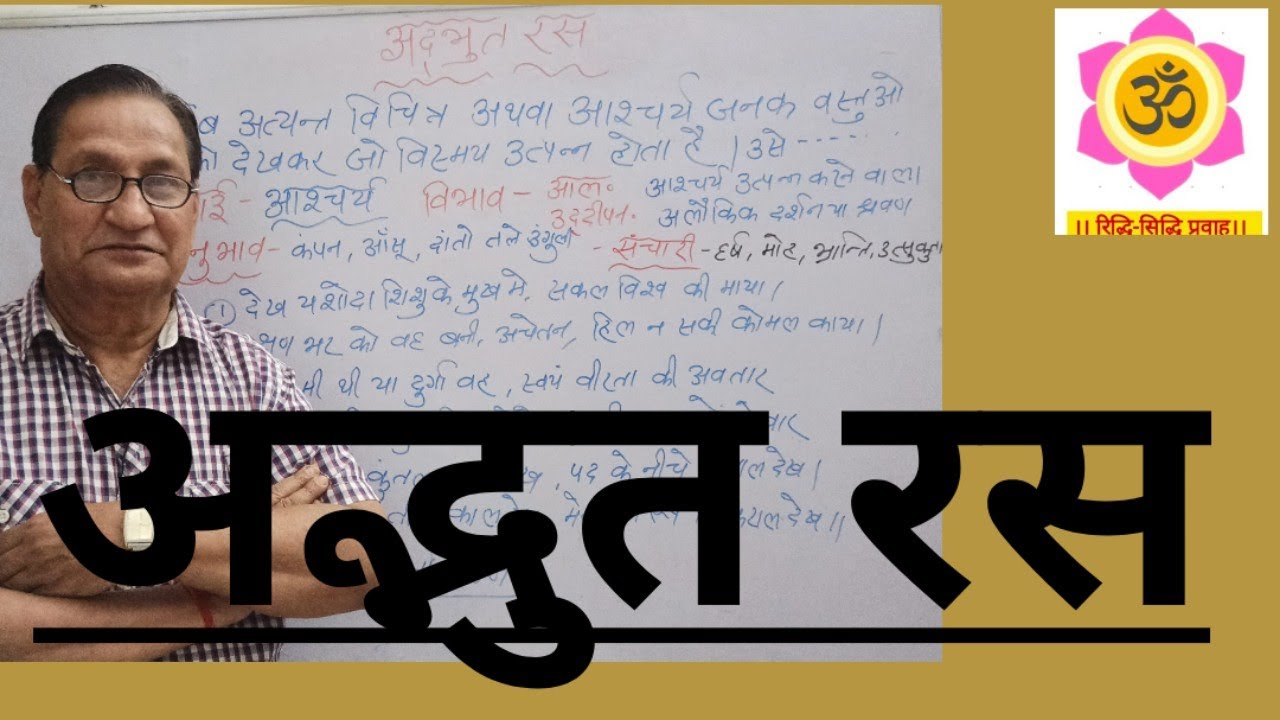 अद्भुत रस
अत्यन्त विचित्र अथवा आश्चर्य जनक वस्तुओ
देखकर जो विस्मय उत्पन्न होता है । उसे -----
आश्चर्य विभाव - आल. आश्चर्य उत्पन्न करने वाला
उद्दीपन. अलौकिक दर्शन या श्रवण
नुभाव - कंपन, आँसू, दांतो तले उंगुली - संचारी - हर्ष, मोह, भ्रान्ति, उत्सुकता
① देख यशोदा शिशु के मुख मे, सकल विश्व की माया।
क्षण भर को वह बनी, अचेतन, हिल न सकी कोमल काया।
थी या दुर्गा वह, स्वयं वीरता की अवतार
पद के नीचे देख।
देख॥
अद्भुत रस
।। रिद्धि-सिद्धि प्रवाह।।
ॐ